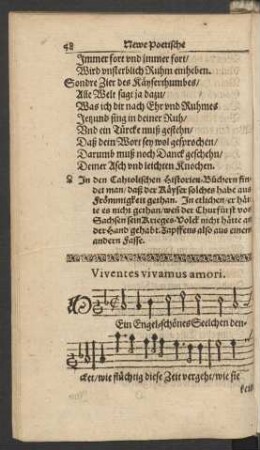 58 Newe Poetische
Jmmer fort vnd immer fort/
Wird vnsterblich Ruhm einheben.
Sondre Zier des Käyserthumbes/
Alle Welt sagt ja dazu/
Was ich dir nach Ehr vnd Ruhmes
Jetzund sing in deiner Ruh/
Vnd ein Türcke muß gestehn/
Daß dein Wort sey wol gesprochen/
Darumb muß noch Danck geschehn/
Deiner Asch vnd leichten Knochen.
In den Catholischen Historien-Büchern fin
det man/ daß der Käyser solches habe aus
Frömmigkeit gethan. In etlichen er hät
te es nicht gethan/ weñ der Churfürst vor
Sachsen sein Krieges-Volck nicht hätte an
der Hand gehabt. Zapffens also aus einem
andern Fasse.
Viventes vivamus amori.
Ein Engel-schönes Seelchen den-
cket/ wie flüchtig diese Zeit vergeht/ wie sie